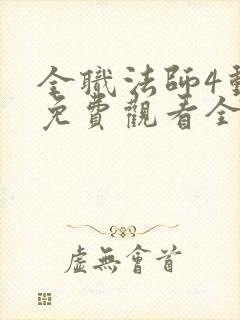 全職法師4動
免費觀看全
虛無會首